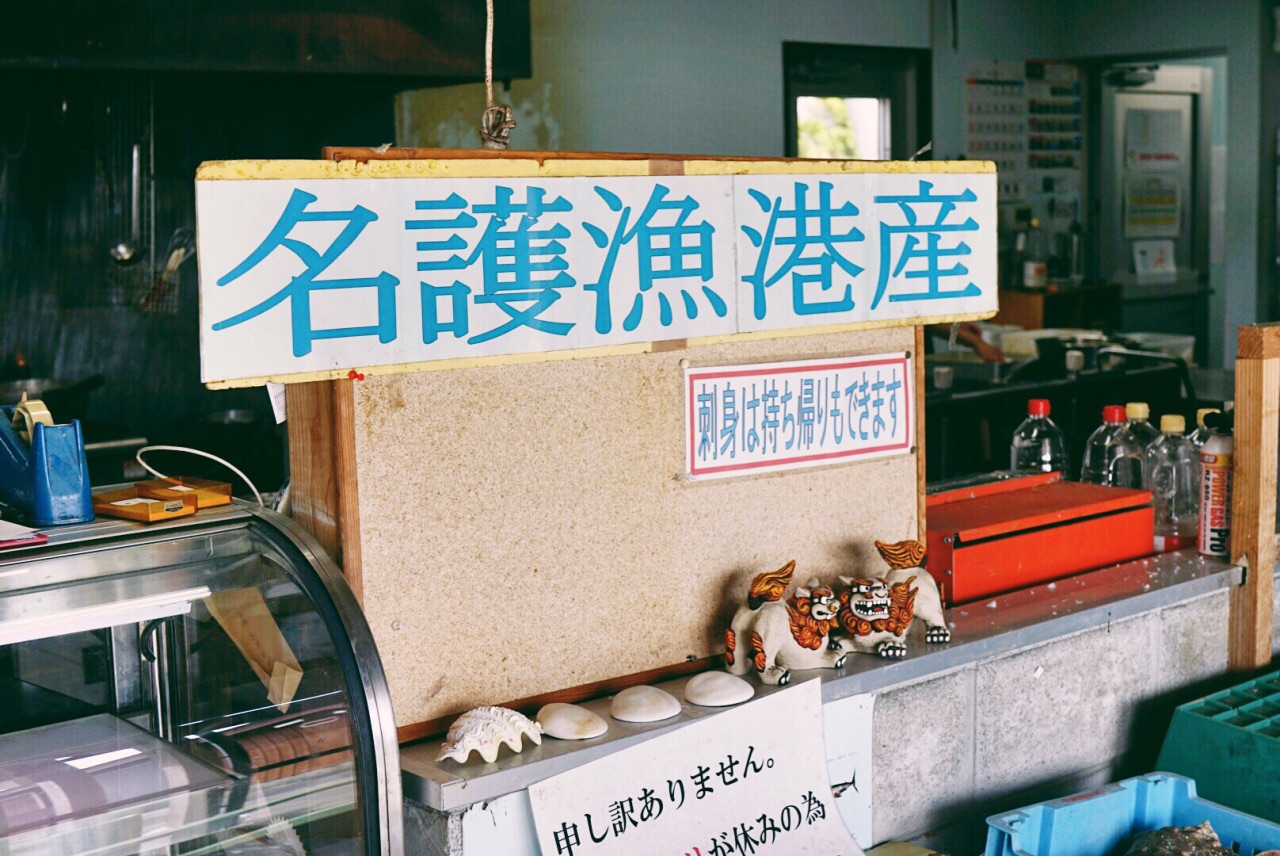 名護漁港産
刺身は持ち帰りもできます
申し訳ありません。
が休みの為
POWER GAS
Pro